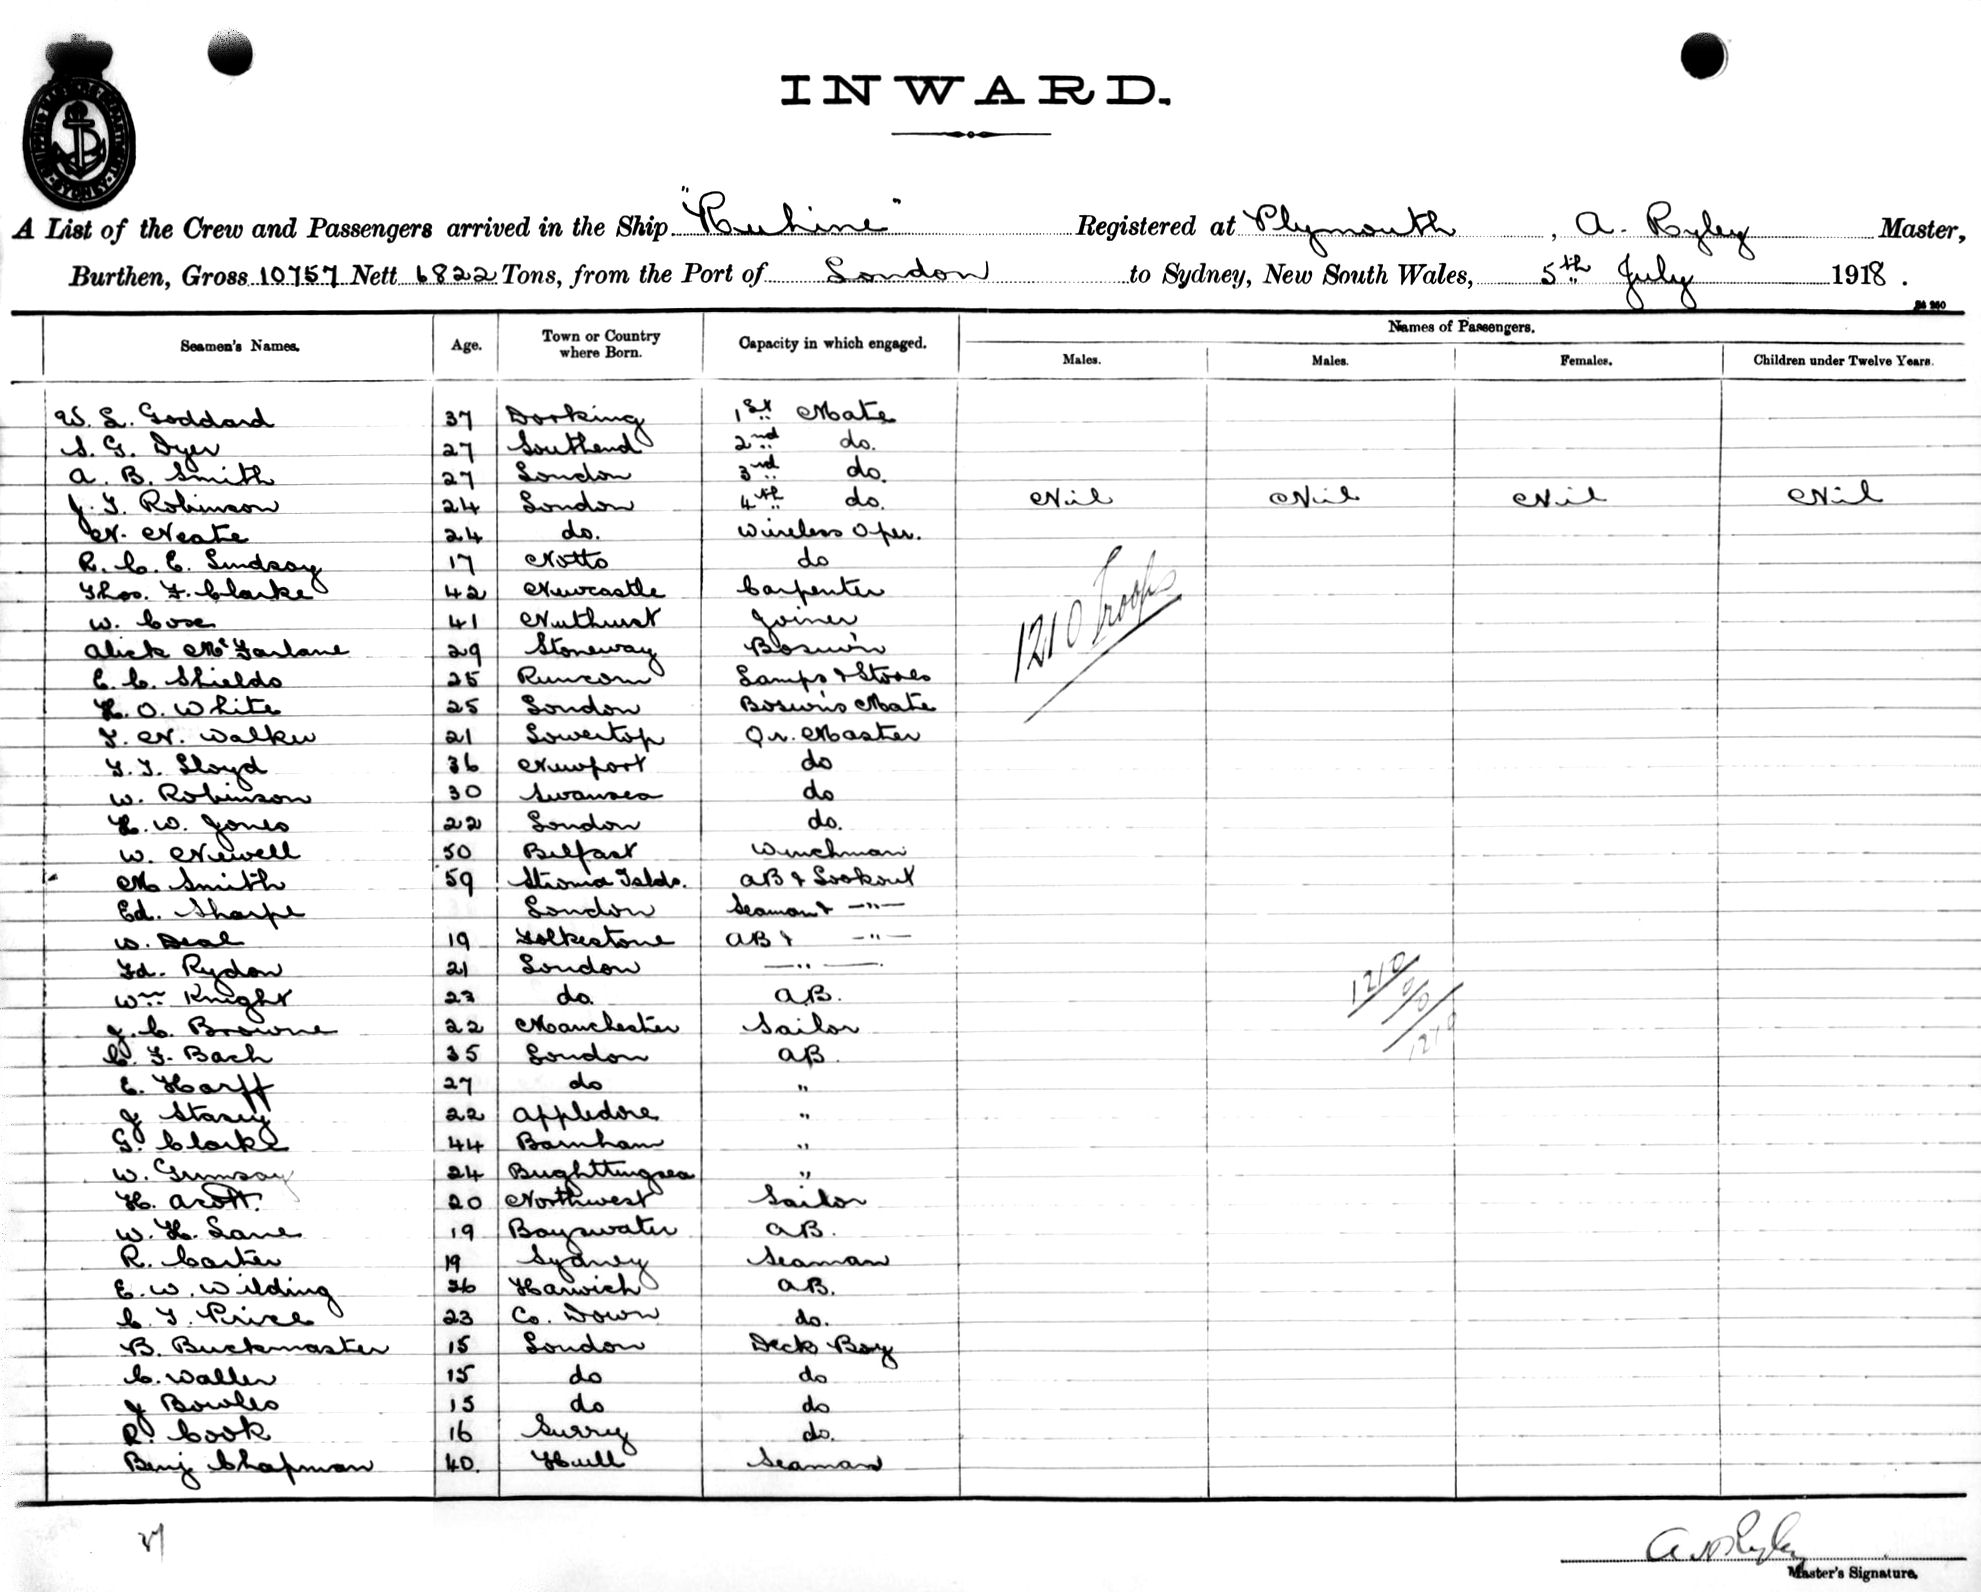 SHIPPING MASTER'S DEPARTMENT SYDNEY
INWARD.
A List of the Crew and Passengers arrived in the Ship "Ruahine" Registered at Plymouth, A. Ryley Master,
Burthen, Gross 10757 Nett 6822 Tons, from the Port of London to Sydney, New South Wales, 5th July 1918.
Seamen's Names. Age. Town or Country where Born. Capacity in which engaged. Names of Passengers.
Males. Males. Females. Children under Twelve Years.
W. L. Goddard 37 Dorking 1st Mate
S. G. Dyer 27 Southend 2nd do.
A. B. Smith 27 London 3rd do.
J. T. Robinson 24 London 4th do. Nil Nil Nil Nil
N. Neate 24 do. Wireless Oper.
R. C. E. Lindsay 17 Notts do
Thos. F. Clarke 42 Newcastle Carpenter
W. Cose 41 Nuthurst Joiner
Alick McFarlane 29 Stoneway Bosw'n
C. C. Shields 25 Runcorn Lamps & Stores
H. O. White 25 London Bosw'ns Mate
T. N. Walker 21 Lowertop Qr. Master
T. T. Lloyd 36 Newport do
W. Robinson 30 Swansea do
H. W. Jones 22 London do.
W. Newell 50 Belfast Winchman
M Smith 59 Stroma Islds. AB & Lookout
Ed. Sharpe London Seaman & —"—
W. Deal 19 Folkestone AB & —"—
Fd. Rydon 21 London —"—
Wm Knight 23 do. A.B.
J. C. Browne 22 Manchester Sailor
C. F. Bach 35 London AB.
E. Harff 27 do "
J Stasey 22 Appledore "
G. Clarke 44 Barnham "
W. Grimsay 24 Brightlingsea "
H. Acott. 20 Northwest Sailor
W. H. Lane 19 Bayswater AB.
R. Carter 19 Sydney Seaman
E. W. Wilding 26 Harwich AB.
C. T. Price 23 Co. Down do.
B. Buckmaster 15 London Deck Boy
C. Waller 15 do do
J Bowles 15 do do
R. Cook 16 Surry do.
Benj Chapman 40. Hull Seaman
1210 Troops
1210
0/0
1210
37
A. Ryley
Master's Signature.